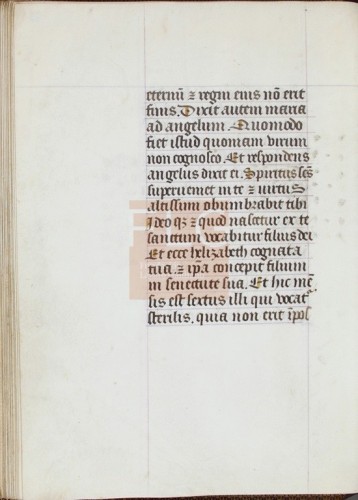 eternū ⁊ regni eius nō erit
finis. Dixit autem maria
ad angelum. Quomodo
fiet istud quoniam virum
non cognosco. Et respondens
angelus dixit ei. Spiritus scs̄
superueniet in te ⁊ virtus
altissimi obumbrabit tibi
Ideo qꝫ ⁊ quod nascetur ex te
sanctum vocabitur filius dei
Et ecce helizabeth cognata
tua. ⁊ ip̄a concepit filium
in senectute sua. Et hic mē
sis est sextus illi que vocat᷑
sterilis. quia non erit īpos